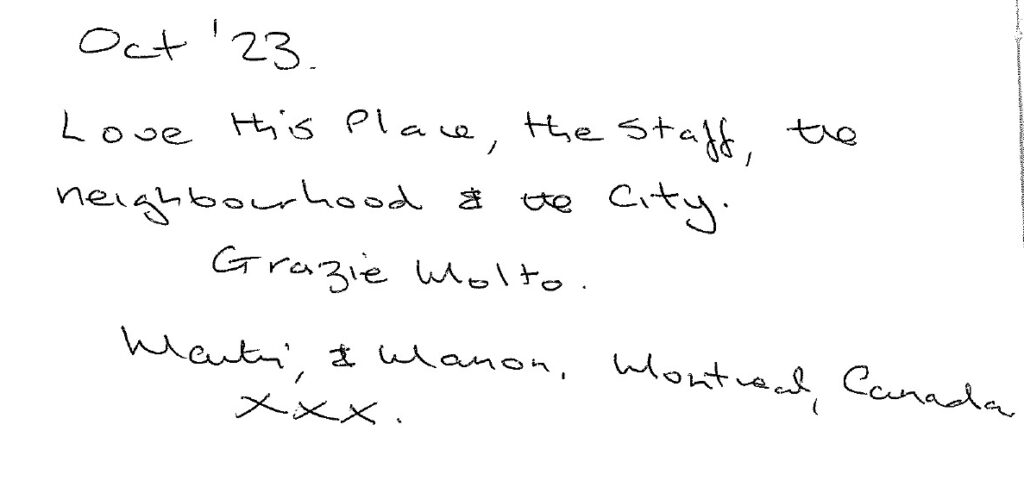 Oct '23.
Love this Place, the Staff, the
neighbourhood & the City.
Grazie Molto.
Martin, & Manon. Montreal, Canada
XXX.